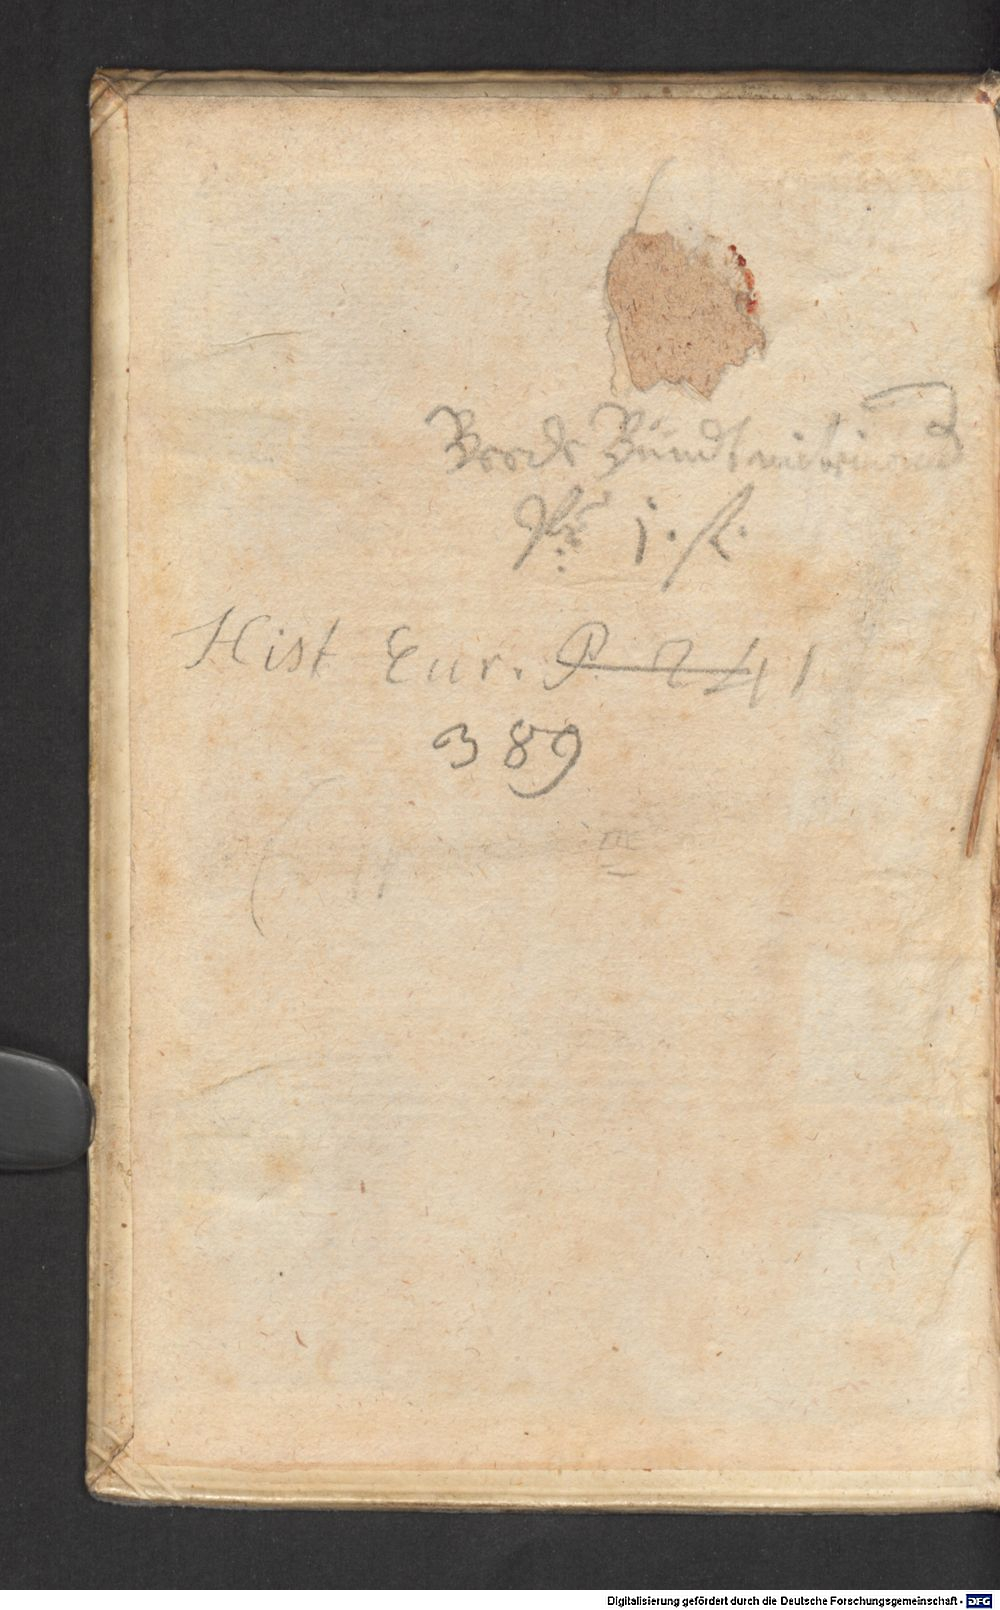 Beede Bündt
j. fl.
Hist Eur. P. 241
389
Digitalisierung gefördert durch die Deutsche Forschungsgemeinschaft - DFG